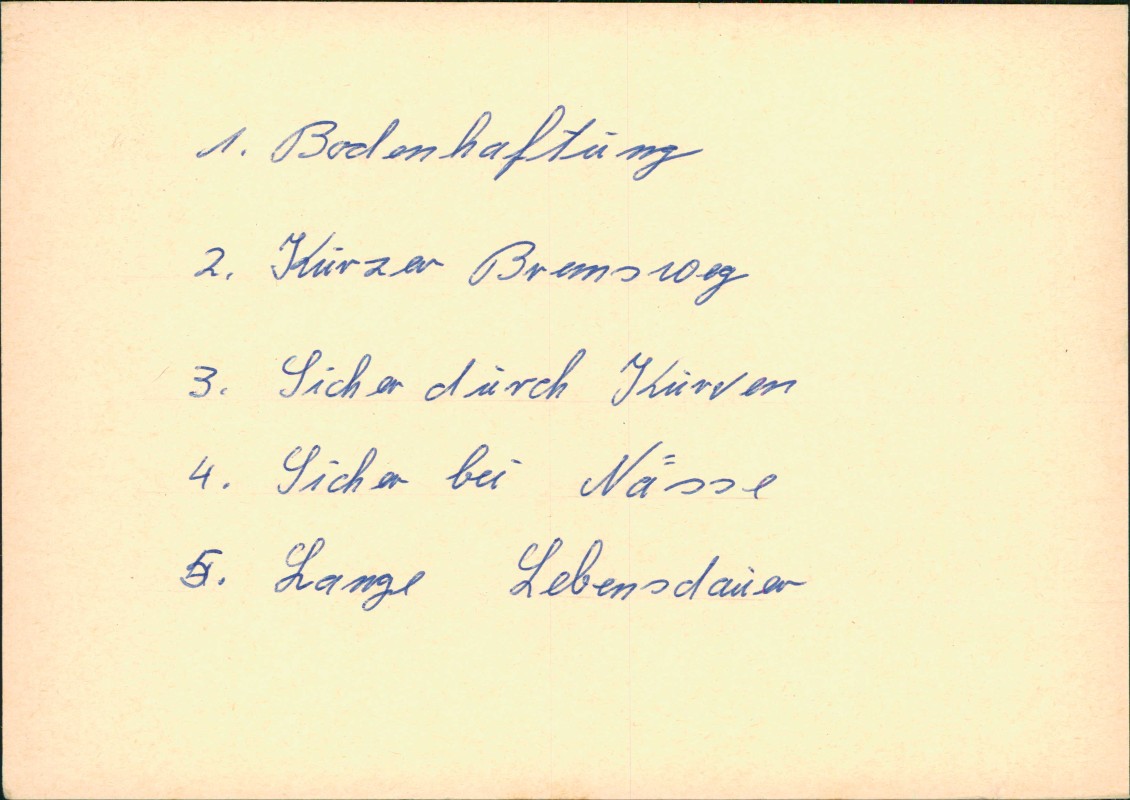 1. Bodenhaftung
2. Kurzer Bremsweg
3. Sicher durch Kurven
4. Sicher bei Nässe
5. Lange Lebensdauer